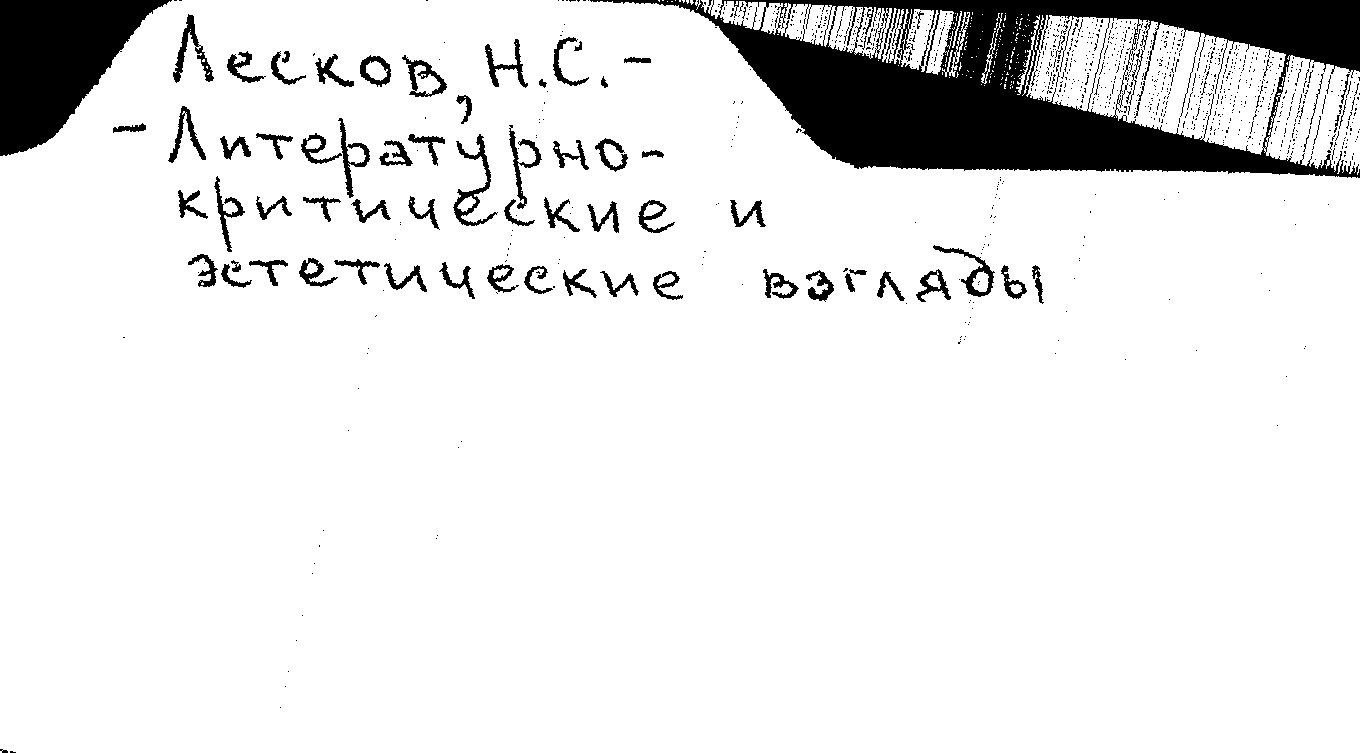 Лесков, Н.С. -
- Литературно-
критические и
эстетические взгляды